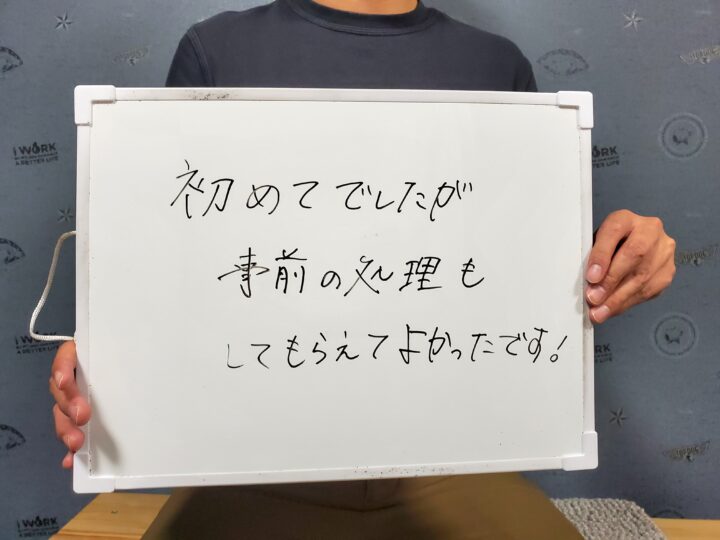 初めてでしたが
事前の処理も
してもらえてよかったです!
I WORK
A BETTER LIFE
I WORK
A BETTER LIFE
I WORK